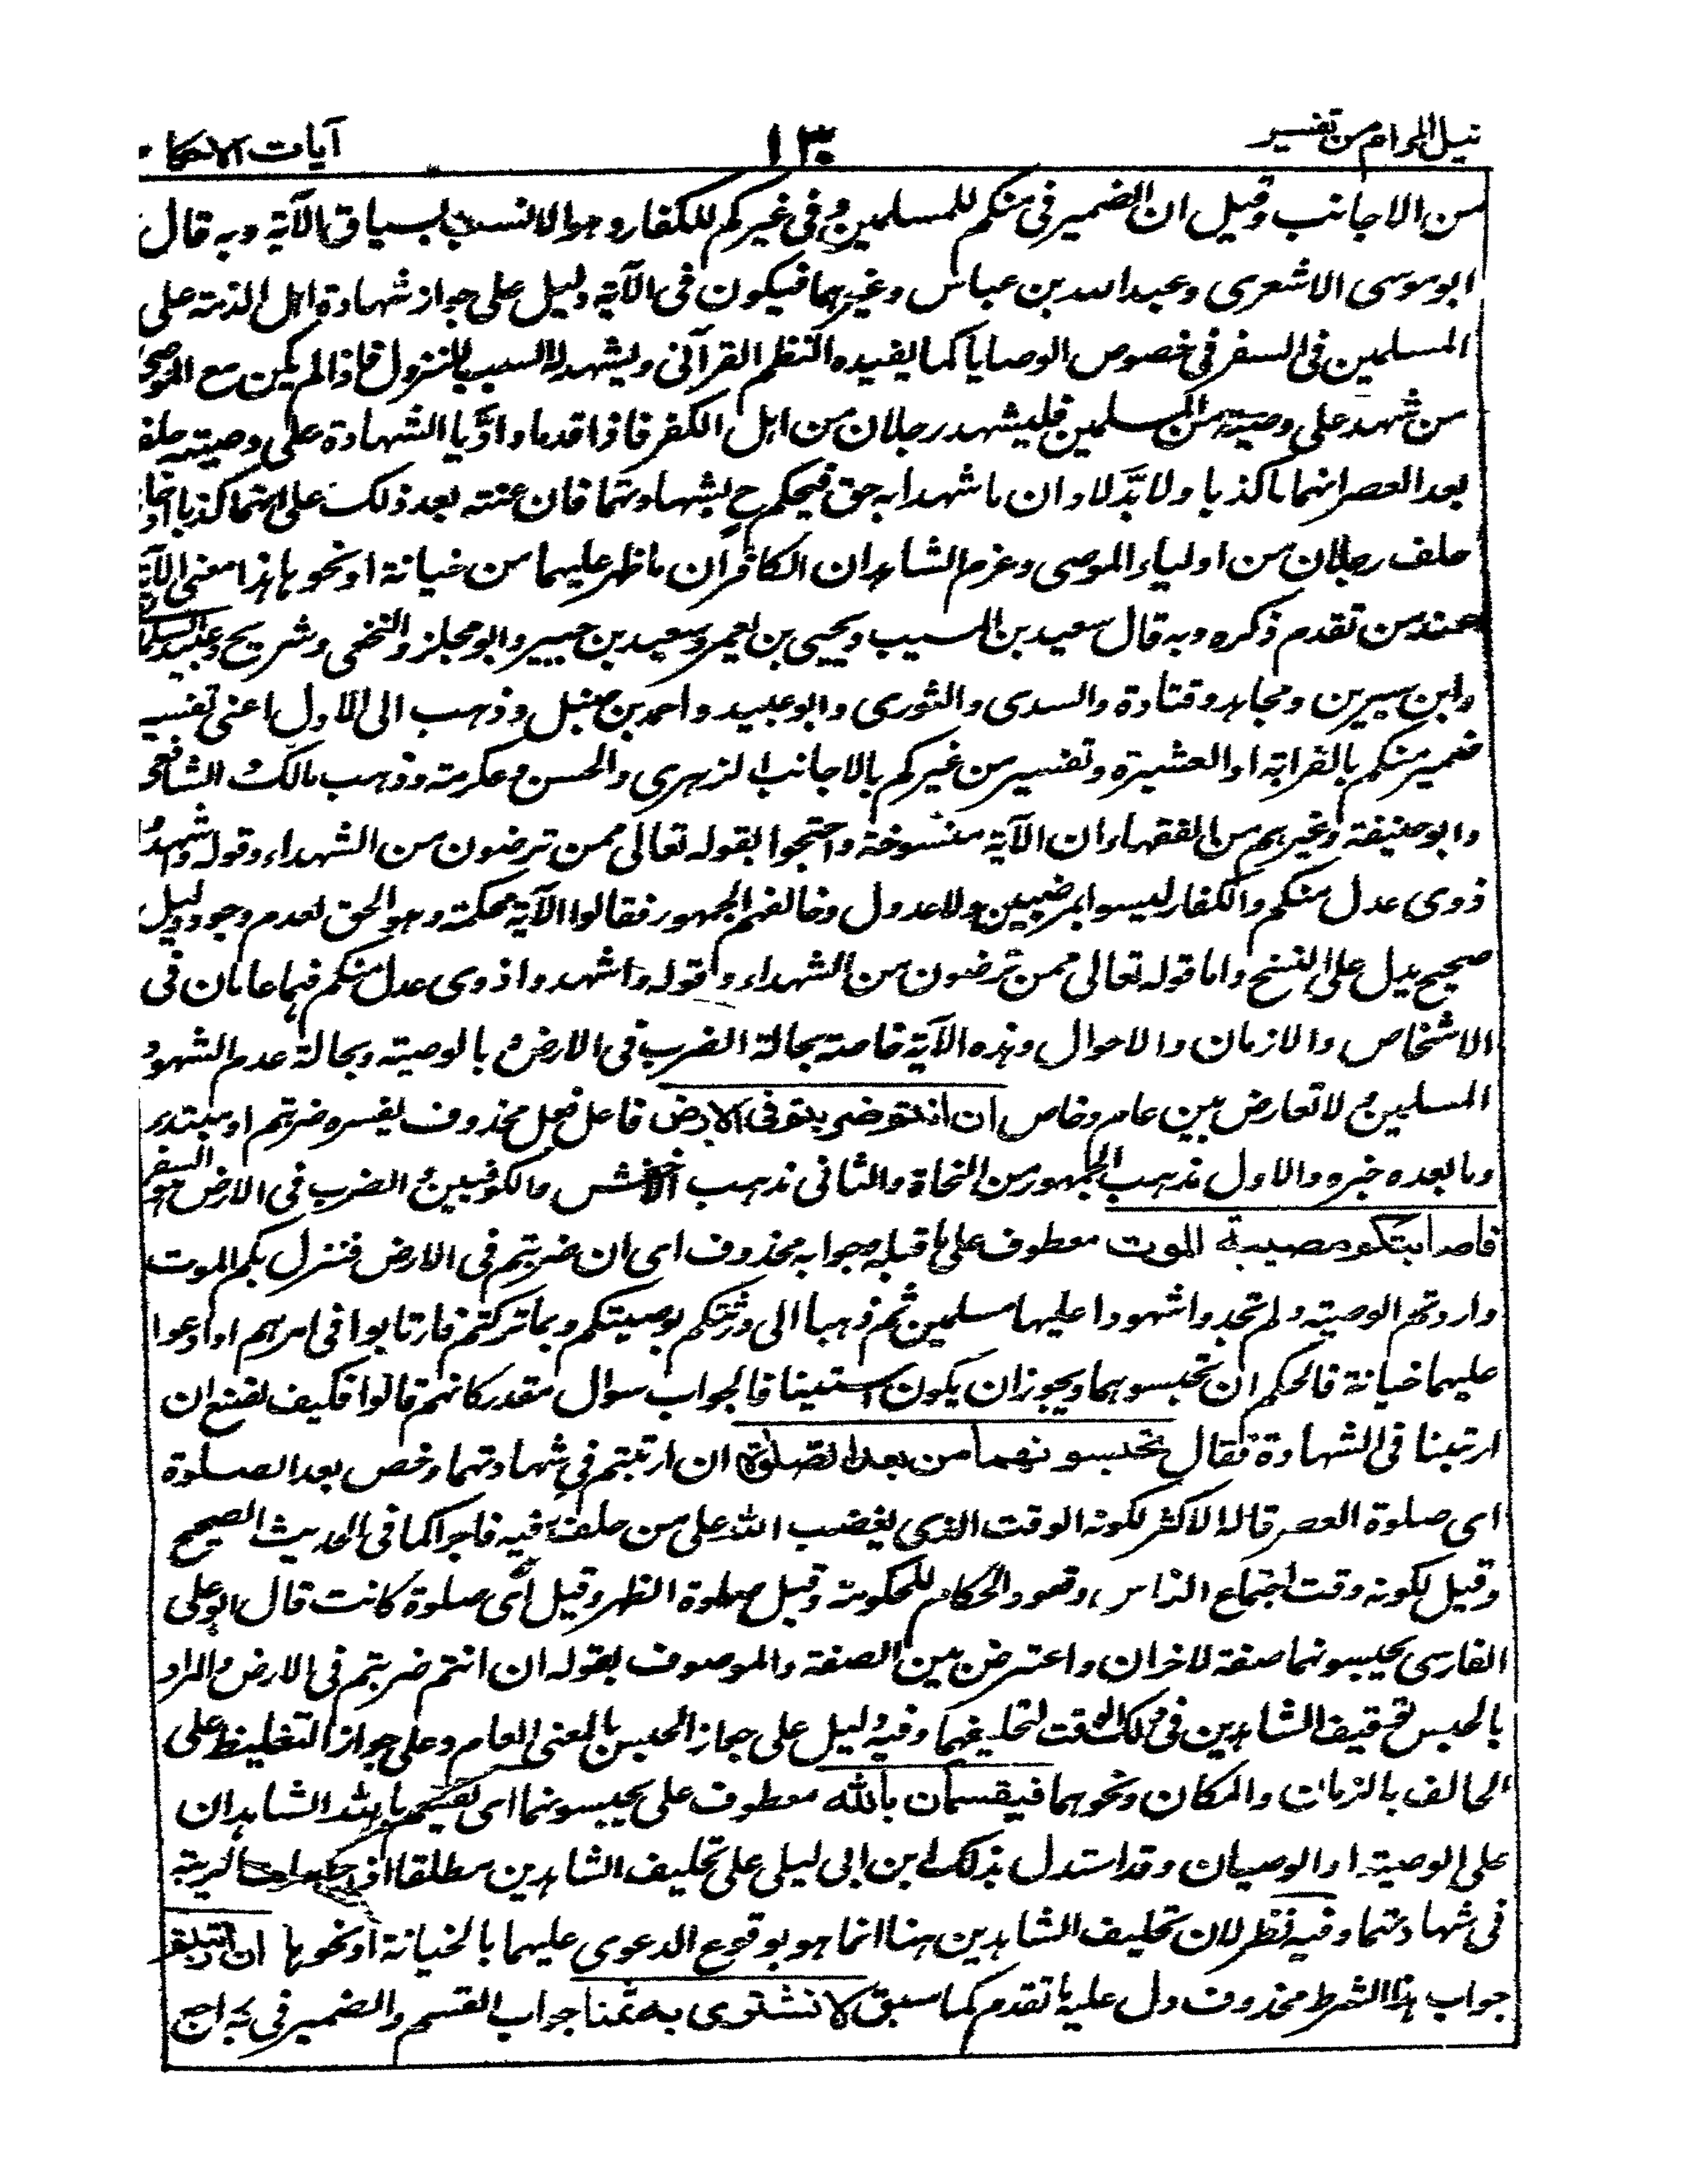 نيل المرام من تفسير ١٣٠ آيات الاحكام
من الاجانب وقيل ان الضمير فى منكم للمسلمين وفى غيركم للكفار وهو الانسب لسياق الآية وبه قال
ابو موسى الاشعرى وعبد الله بن عباس وغيرهما فيكون فى الآية دليل على جواز شهادة اهل الذمة على
المسلمين فى السفر فى خصوص الوصايا كما يفيده النظم القرآنى ويشهد له السبب للنزول فاذا لم يكن مع الموصى
من شهد على وصيته من المسلمين فليشهد رجلان من اهل الكفر فاذا قدما وادّيا الشهادة على وصيته حلفا
بعد العصر انهما ما كذبا ولا بدّلا وان ما شهدا به حق فيحكم ح بشهادتهما فان عثر بعد ذلك على انهما كذبا او خانا
حلف رجلان من اولياء الموصى وغرم الشاهدان الكافران ما ظهر عليهما من خيانة او نحوها هذا معنى الآية
عند من تقدم ذكره وبه قال سعيد بن المسيب ويحيى بن يعمر وسعيد بن جبير وابو مجلز والنخعى وشريح وعبيدة السلمانى
وابن سيرين ومجاهد وقتادة والسدى والثورى وابو عبيد واحمد بن حنبل وذهب الى الاول اعنى تفسير
ضمير منكم بالقرابة او العشيرة وتفسير من غيركم بالاجانب الزهرى والحسن وعكرمة وذهب مالك والشافعى
وابو حنيفة وغيرهم من الفقهاء ان الآية منسوخة واحتجوا بقوله تعالى ممن ترضون من الشهداء وقوله واشهدوا
ذوى عدل منكم والكفار ليسوا بمرضيين ولا عدول وخالفهم الجمهور فقالوا الآية محكمة وهو الحق لعدم وجود دليل
صحيح يدل على النسخ واما قوله تعالى ممن ترضون من الشهداء وقوله واشهدوا ذوى عدل منكم فهما عامان فى
الاشخاص والازمان والاحوال وهذه الآية خاصة بحالة الضرب فى الارض وبالوصية وبحالة عدم الشهود
المسلمين ولا تعارض بين عام وخاص ان انتم ضربتم فى الارض فاعل فعل محذوف يفسره ضربتم او مبتدء
وما بعده خبره والاول مذهب الجمهور من النحاة والثانى مذهب الاخفش والكوفيين والضرب فى الارض هو السفر
فاصابتكم مصيبة الموت معطوف على ما قبله وجوابه محذوف اى ان ضربتم فى الارض فنزل بكم الموت
واردتم الوصية ولم تجدوا شهودا عليها مسلمين ثم ذهبا الى ورثتكم بوصيتكم وبما تركتم فارتابوا فى امرهم او ادعوا
عليهما خيانة فالحكم ان تحبسوهما ويجوز ان يكون استينافا لجواب سوال مقدر كانهم قالوا فكيف نصنع ان
ارتبنا فى الشهادة فقال تحبسونهما من بعد الصلوة ان ارتبتم فى شهادتهما وخص بعد الصلوة
اى صلوة العصر قاله الاكثر لكونه الوقت الذى يغضب الله على من حلف فيه فاجرا كما فى الحديث الصحيح
وقيل لكونه وقت اجتماع الناس وقعود الحكام للحكومة وقيل صلوة الظهر وقيل اى صلوة كانت قال ابو على
الفارسى يحبسونهما صفة لاخران واعترض بين الصفة والموصوف بقوله ان انتم ضربتم فى الارض والمراد
بالحبس توقيف الشاهدين فى ذلك الوقت لتحليفهما وفيه دليل على جواز الحبس بالمعنى العام وعلى جواز التغليظ على
الحالف بالزمان والمكان ونحوهما فيقسمان بالله معطوف على يحبسونهما اى يقسم بالله الشاهدان
على الوصية او الوصيان وقد استدل بذلك ابن ابى ليلى على تحليف الشاهدين مطلقا اذ حصلت الريبة
فى شهادتهما وفيه نظر لان تحليف الشاهدين هنا انما هو بوقوع الدعوى عليهما بالخيانة او نحوها ان ارتبتم
جواب هذا الشرط محذوف دل عليه ما تقدم كما سبق لا نشترى به ثمنا جواب القسم والضمير فى به راجع